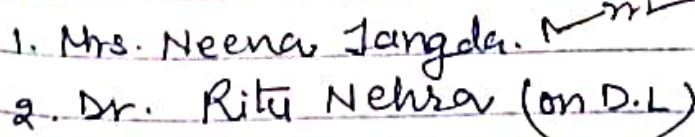 1. Mrs. Neena Jangda.
2. Dr. Ritu Nehra (on D.L)